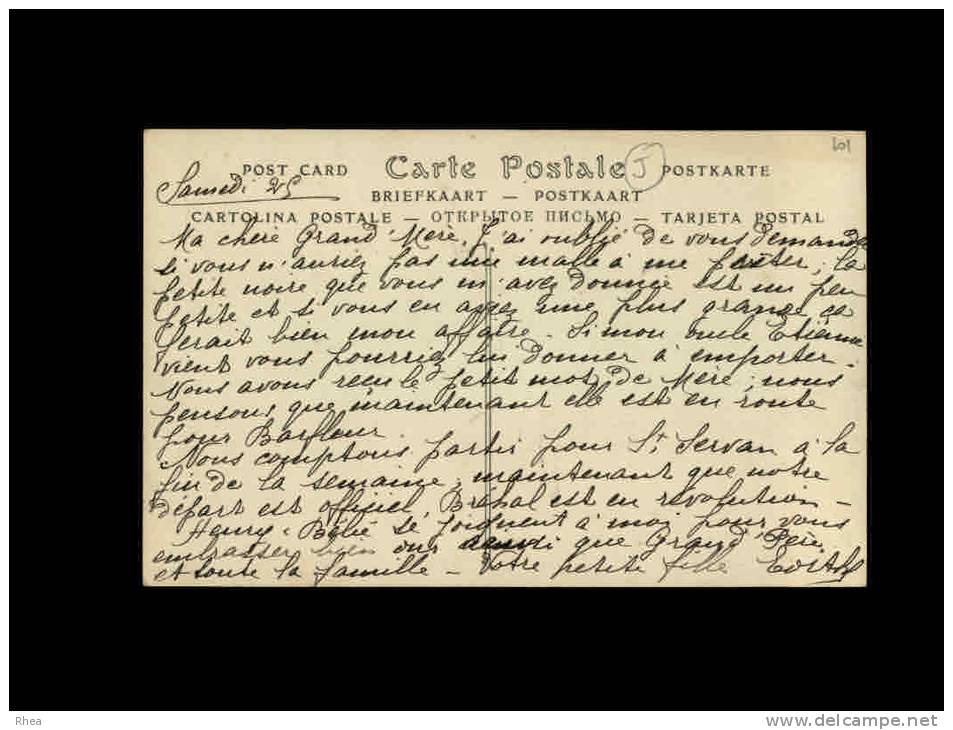 601
POST CARD Carte Postale J POSTKARTE
Samedi 25
BRIEFKAART — POSTKAART
CARTOLINA POSTALE — ОТКРЫТОЕ ПИСЬМО — TARJETA POSTAL
Ma chère Grand'Mère, J'ai oublié de vous demander
si vous n'auriez pas une malle à me prêter, la
petite noire que vous m'avez donnée est un peu
petite et si vous en aviez une plus grande ça
ferait bien mon affaire. Si mon oncle Etienne
vient vous pourriez lui donner à emporter.
Nous avons reçu le petit mot de Mère; nous
pensons que maintenant elle est en route
pour Barfleur.
Nous comptons partir pour St Servan à la
fin de la semaine; maintenant que notre
départ est officiel, Bréhal est en révolution —
Henry, Bébé se joignent à moi pour vous
embrasser bien ainsi que Grand'Père
et toute la famille — Votre petite fille Edith
Rhea
www.delcampe.net